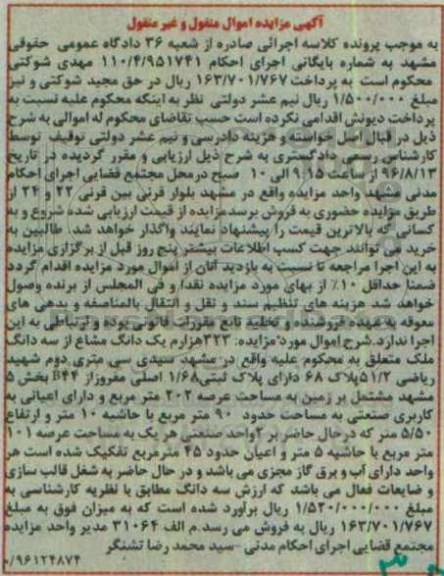 آگهی مزایده اموال منقول و غیر منقول
به موجب پرونده کلاسه اجرائی صادره از شعبه ۳۶ دادگاه عمومی حقوقی
مشهد به شماره بایگانی اجرای احکام ۱۱۰/۴/۹۵۱۷۴۱ مهدی شوکتی
محکوم است به پرداخت ۱۶۳/۷۰۱/۷۶۷ ریال در حق مجید شوکتی و نیز
مبلغ ۱/۵۰۰/۰۰۰ ریال نیم عشر دولتی نظر به اینکه محکوم علیه نسبت به
پرداخت دیونش اقدامی نکرده است حسب تقاضای محکوم له اموالی به شرح
ذیل در قبال اصل خواسته و هزینه دادرسی و نیم عشر دولتی توقیف توسط
کارشناس رسمی دادگستری به شرح ذیل ارزیابی و مقرر گردیده در تاریخ
۹۶/۸/۱۳ از ساعت ۹:۱۵ الی ۱۰ صبح درمحل مجتمع قضایی اجرای احکام
مدنی مشهد واحد مزایده واقع در مشهد بلوار قرنی بین قرنی ۲۲ و ۲۴ از
طریق مزایده حضوری به فروش برسد مزایده از قیمت ارزیابی شده شروع و به
کسانی که بالاترین قیمت را پیشنهاد نمایند واگذار خواهد شد. طالبین به
خرید می توانند جهت کسب اطلاعات بیشتر پنج روز قبل از برگزاری مزایده
به این اجرا مراجعه تا نسبت به بازدید آنان از اموال مورد مزایده اقدام گردد
ضمنا حداقل ۱۰٪ از بهای مورد مزایده نقدا و فی المجلس از برنده وصول
خواهد شد هزینه های تنظیم سند و نقل و انتقال بالمناصفه و بدهی های
معوقه به عهده فروشنده و تخلیه تابع مقررات قانونی بوده و ارتباطی به این
اجرا ندارد.شرح اموال مورد مزایده: ۳۲۳هزارم یک دانگ مشاع از سه دانگ
ملک متعلق به محکوم علیه واقع در مشهد سیدی سی متری دوم شهید
ریاضی ۵۱/۲پلاک ۶۸ دارای پلاک ثبتی۱/۶۸ اصلی مفروزاز B۴۴ بخش ۵
مشهد مشتمل بر زمین به مساحت عرصه ۲۰۲ متر مربع و دارای اعیانی به
کاربری صنعتی به مساحت حدود ۹۰ متر مربع با حاشیه ۱۰ متر و ارتفاع
۵/۵۰ متر که درحال حاضر بر ۲واحد صنعتی هر یک به مساحت عرصه ۱۰۱
متر مربع با حاشیه ۵ متر و اعیان حدود ۴۵ مترمربع تفکیک شده است هر
واحد دارای آب و برق گاز مجزی می باشد و در حال حاضر به شغل قالب سازی
و ضایعات فعال می باشد که ارزش سه دانگ مطابق با نظریه کارشناسی به
مبلغ ۱/۵۲۰/۰۰۰/۰۰۰ ریال برآورد شده است که به میزان فوق به مبلغ
۱۶۳/۷۰۱/۷۶۷ ریال به فروش می رسد.م الف ۳۱۰۶۴ مدیر واحد مزایده
مجتمع قضایی اجرای احکام مدنی -سید محمد رضا تشنگر
۹۶۱۲۴۸۷۴/